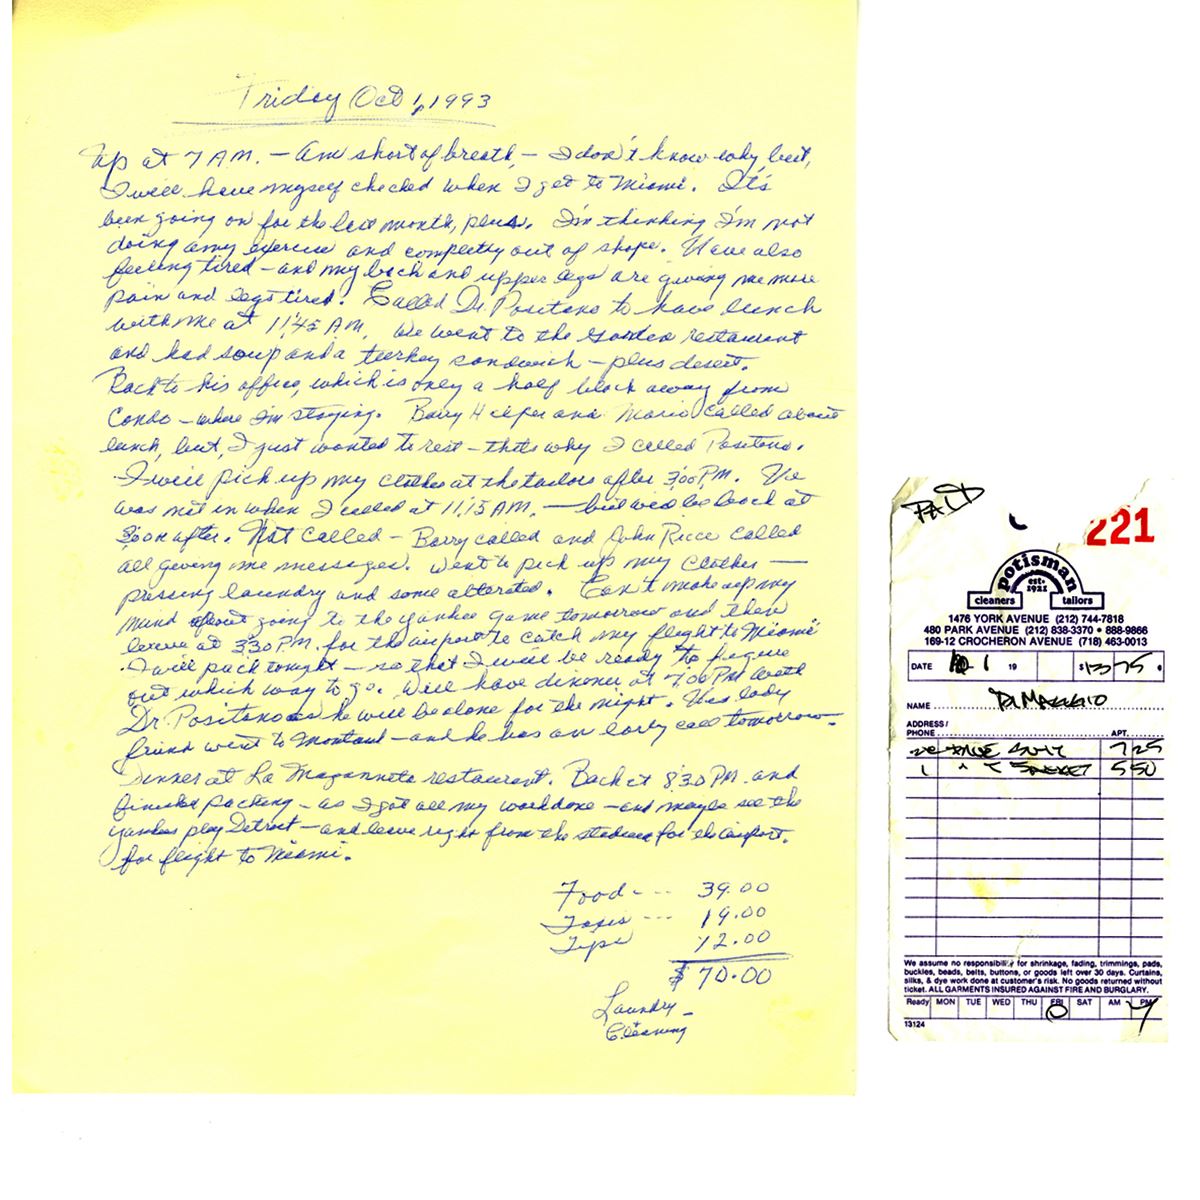 Friday Oct 1, 1993
Up at 7 A.M. — Am short of breath, — I don't know why, but,
I will have myself checked when I get to Miami. It's
been going on for the last month, plus. I'm thinking I'm not
doing any exercise and completly out of shape. Have also
feeling tired — and my back and upper legs are giving me more
pain and legs tired. Called Dr. Positano to have lunch
with me at 11:45 A.M. We went to the Garden restaurant
and had soup and a turkey sandwich — plus desert.
Back to his office, which is only a half block away from
Condo — where I'm staying. Barry Halper and Mario called about
lunch, but, I just wanted to rest — thats why I called Positano.
I will pick up my clothes at the tailors after 3:00 P.M. He
was not in when I called at 11:15 A.M. — but will be back at
3:00 or after. Nat called — Barry called and John Rice called
all giving me messages. Went to pick up my clothes —
pressing laundry and some alterated. Can't make up my
mind about going to the Yankee game tomorrow and then
leave at 3:30 P.M. for the airport to catch my flight to Miami
I will pack tonight — so that I will be ready to figure
out which way to go. Will have dinner at 7:00 PM with
Dr. Positano as he will be alone for the night. His lady
friend went to Montauk — and he has an early call tomorrow.
Dinner at La Maganette restaurant. Back at 8:30 P.M. and
finished packing — as I got all my work done — and maybe see the
Yankees play Detroit — and leave right from the stadium for the airport.
for flight to Miami.
Food --- 39.00
Taxis --- 19.00
Tips 12.00
$70.00
Laundry —
+
Cleaning
PAID
221
potisman
est. 1921
cleaners tailors
1476 YORK AVENUE (212) 744-7818
480 PARK AVENUE (212) 838-3370 • 888-9866
169-12 CROCHERON AVENUE (718) 463-0013
DATE 10-1 19 $13.75
NAME DiMAGGIO
ADDRESS/
PHONE APT.
SUIT 7.25
1 JACKET 5.50
We assume no responsibility for shrinkage, fading, trimmings, pads,
buckles, beads, belts, buttons, or goods left over 30 days. Curtains,
silks, & dye work done at customer's risk. No goods returned without
ticket. ALL GARMENTS INSURED AGAINST FIRE AND BURGLARY.
Ready MON TUE WED THU FRI SAT AM PM
13124